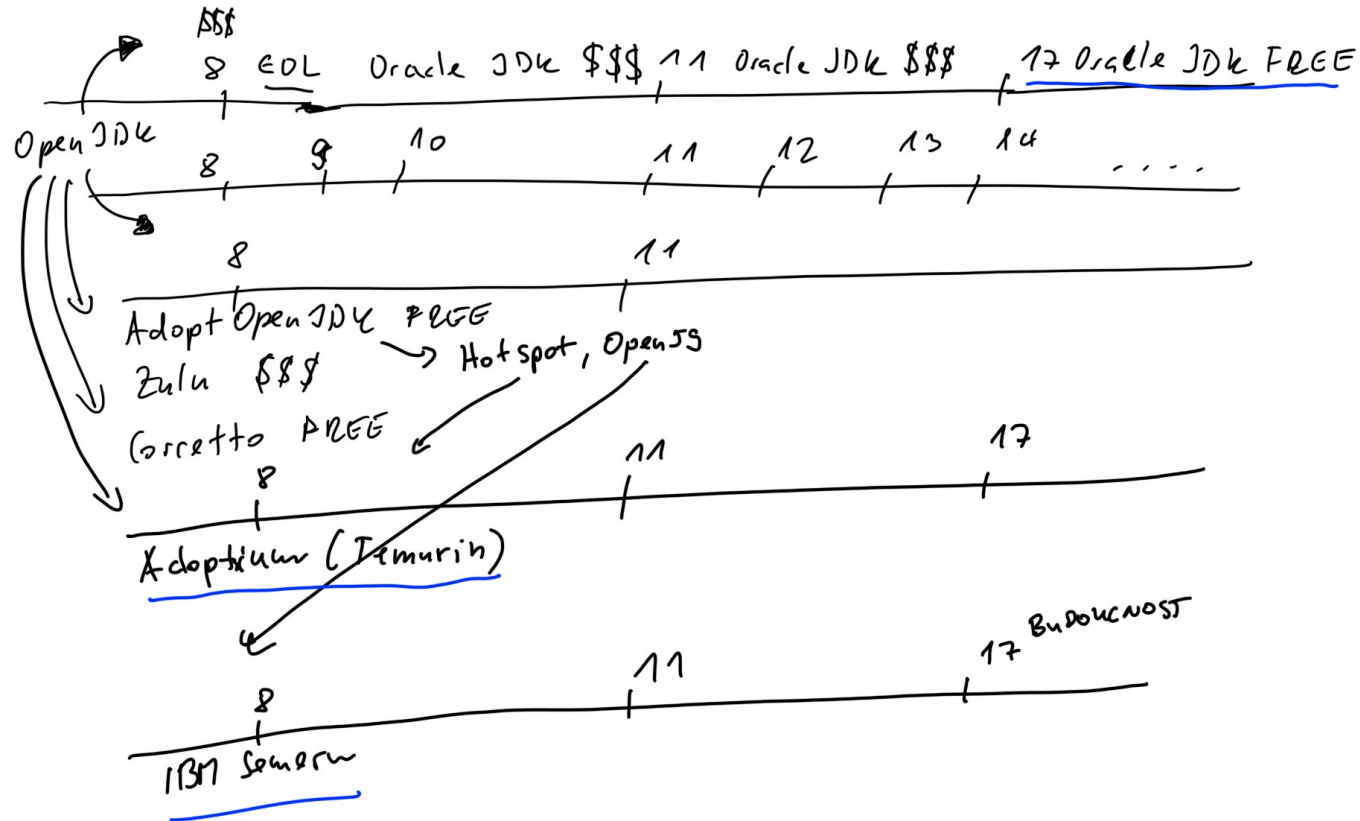 $$$
8 EOL Oracle JDK $$$ 11 Oracle JDK $$$ 17 Oracle JDK FREE
OpenJDK
8 9 10 11 12 13 14 ....
8 11
AdoptOpenJDK FREE
Hotspot, OpenJ9
Zulu $$$
Corretto FREE
8 11 17
Adoptium (Temurin)
17 BUDOUCNOST
8 11
IBM Semeru